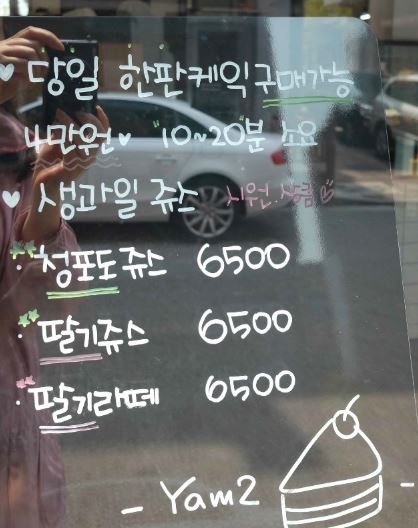 ♥ 당일 한판케익구매가능
4만원♥ "10~20"분 소요
♥ 생과일 쥬스 시원.상큼
· 청포도쥬스 6500
· 딸기쥬스 6500
· 딸기라떼 6500
- Yam2 -